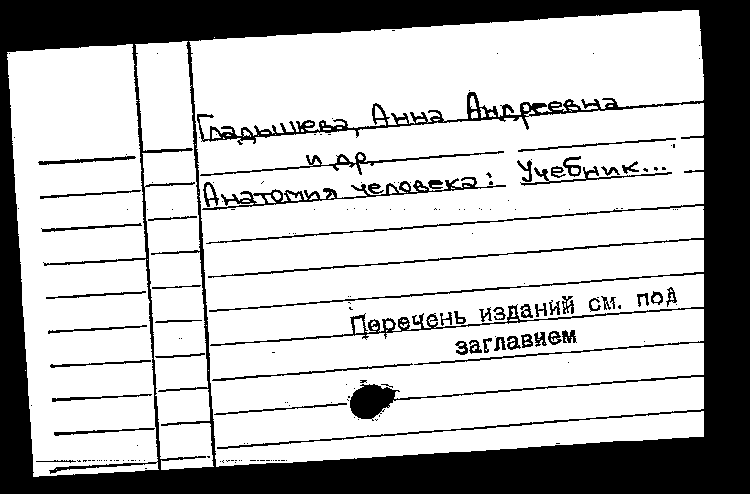 Гладышева, Анна Андреевна
и др.
Анатомия человека: Учебник...
Перечень изданий см. под
заглавием